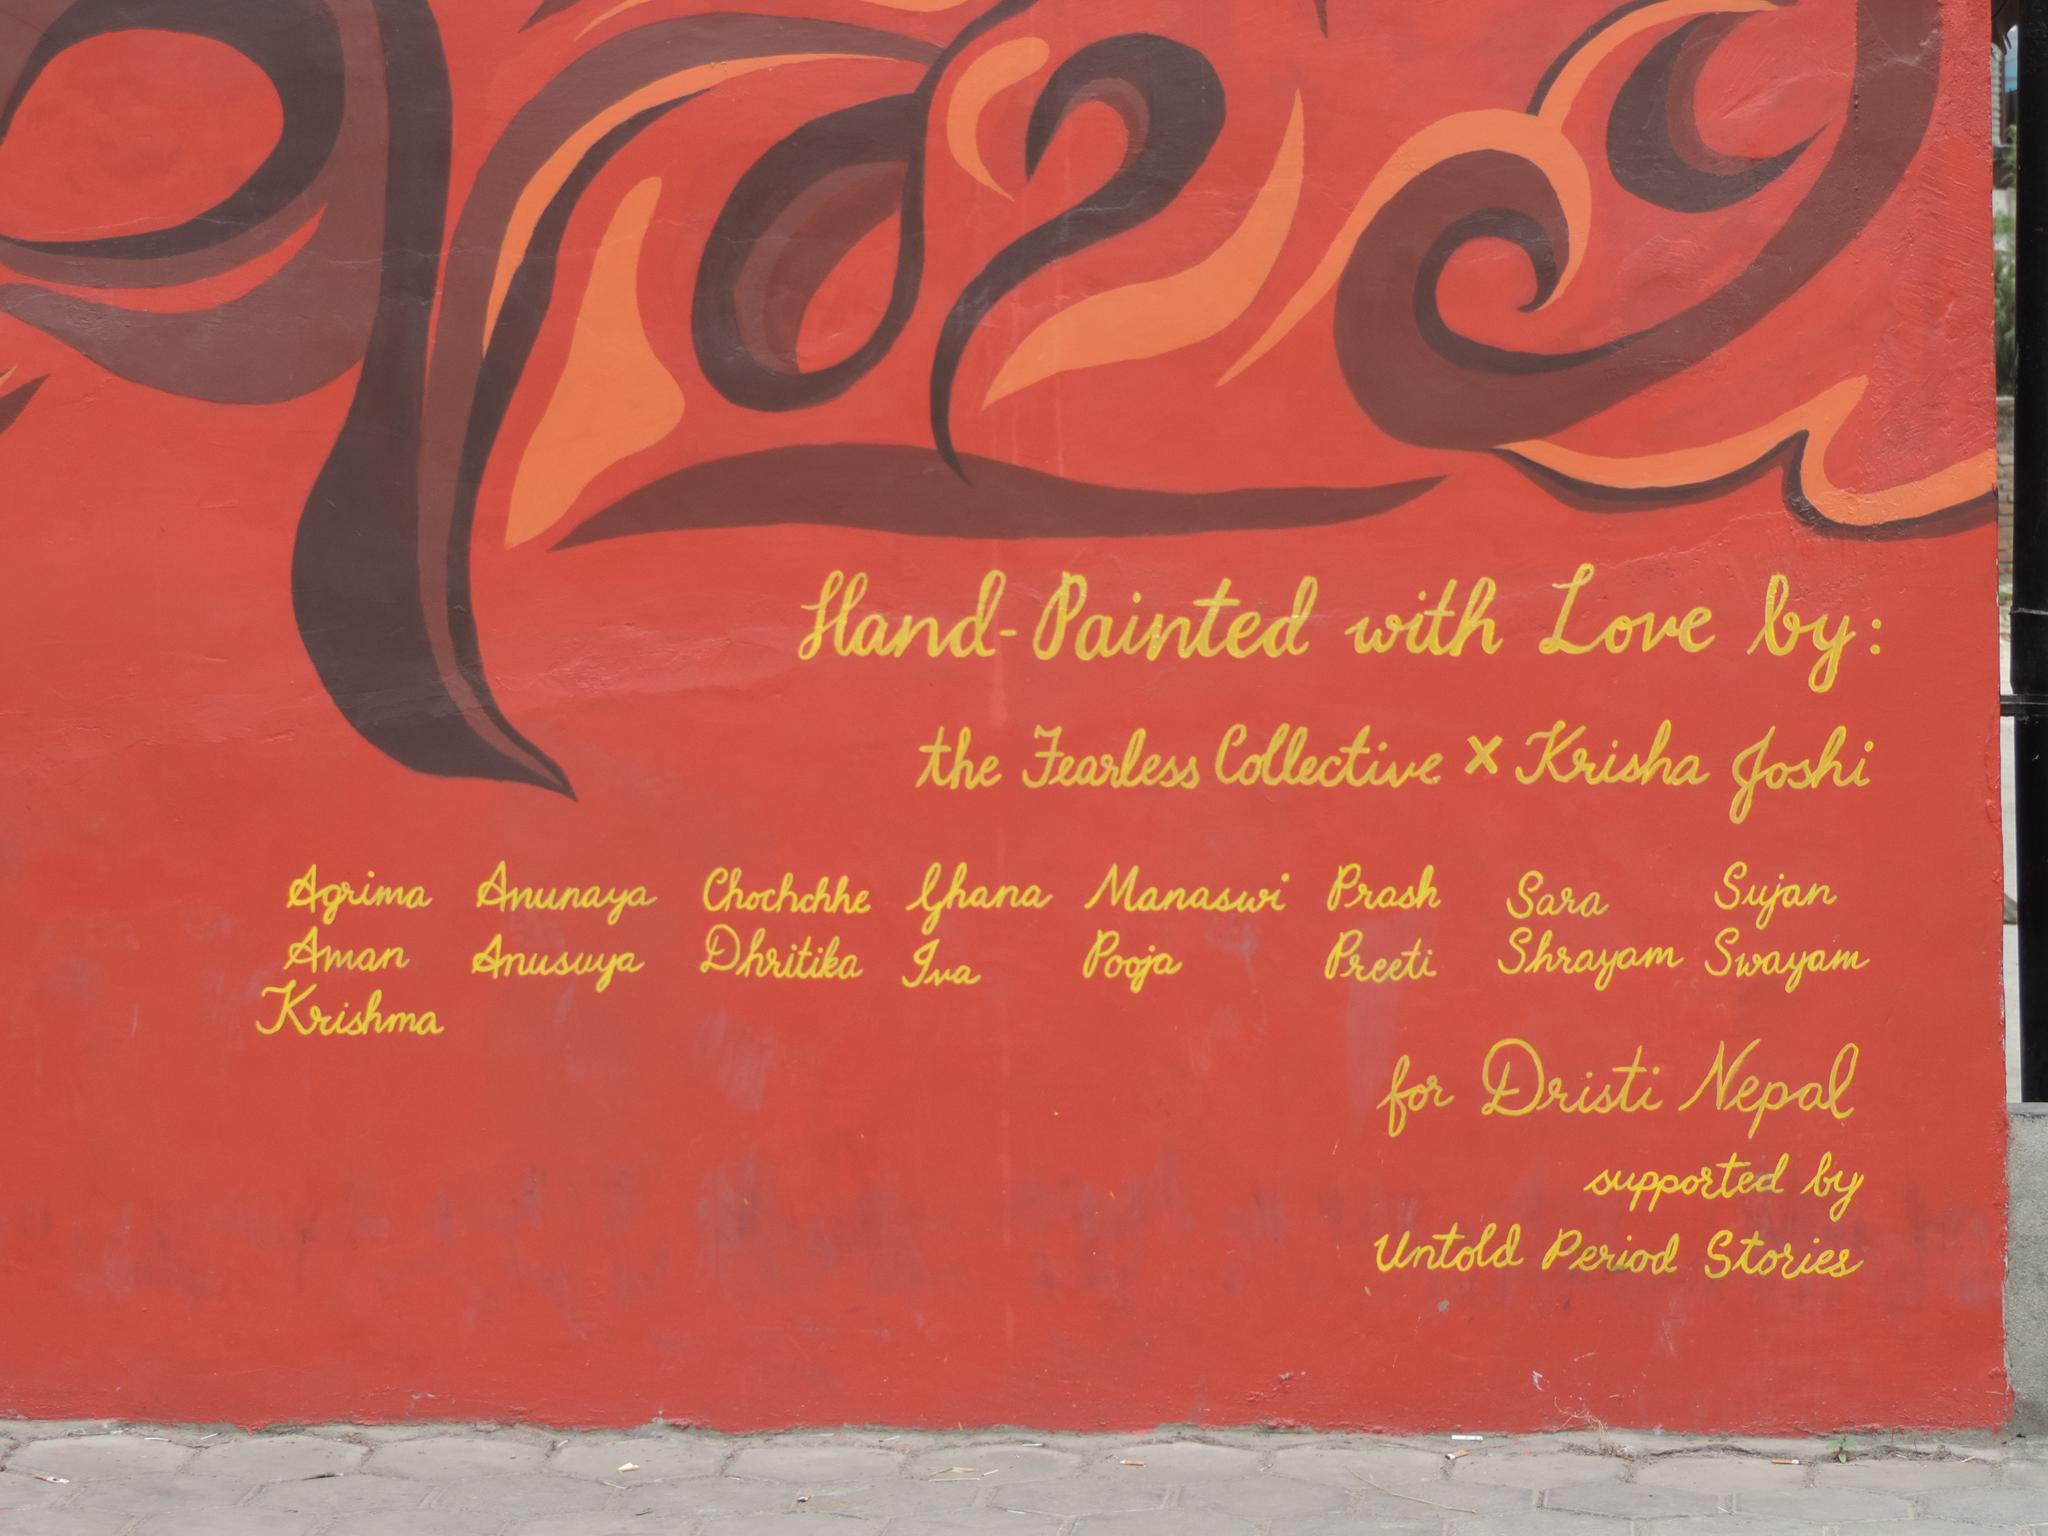 Hand-Painted with Love by:
the Fearless Collective x Krisha Joshi
Agrima Anunaya Chochchhe Ghana Manaswi Prash Sara Sujan
Aman Anusuya Dhritika Iva Pooja Preeti Shrayam Swayam
Krishma
for Dristi Nepal
supported by
Untold Period Stories